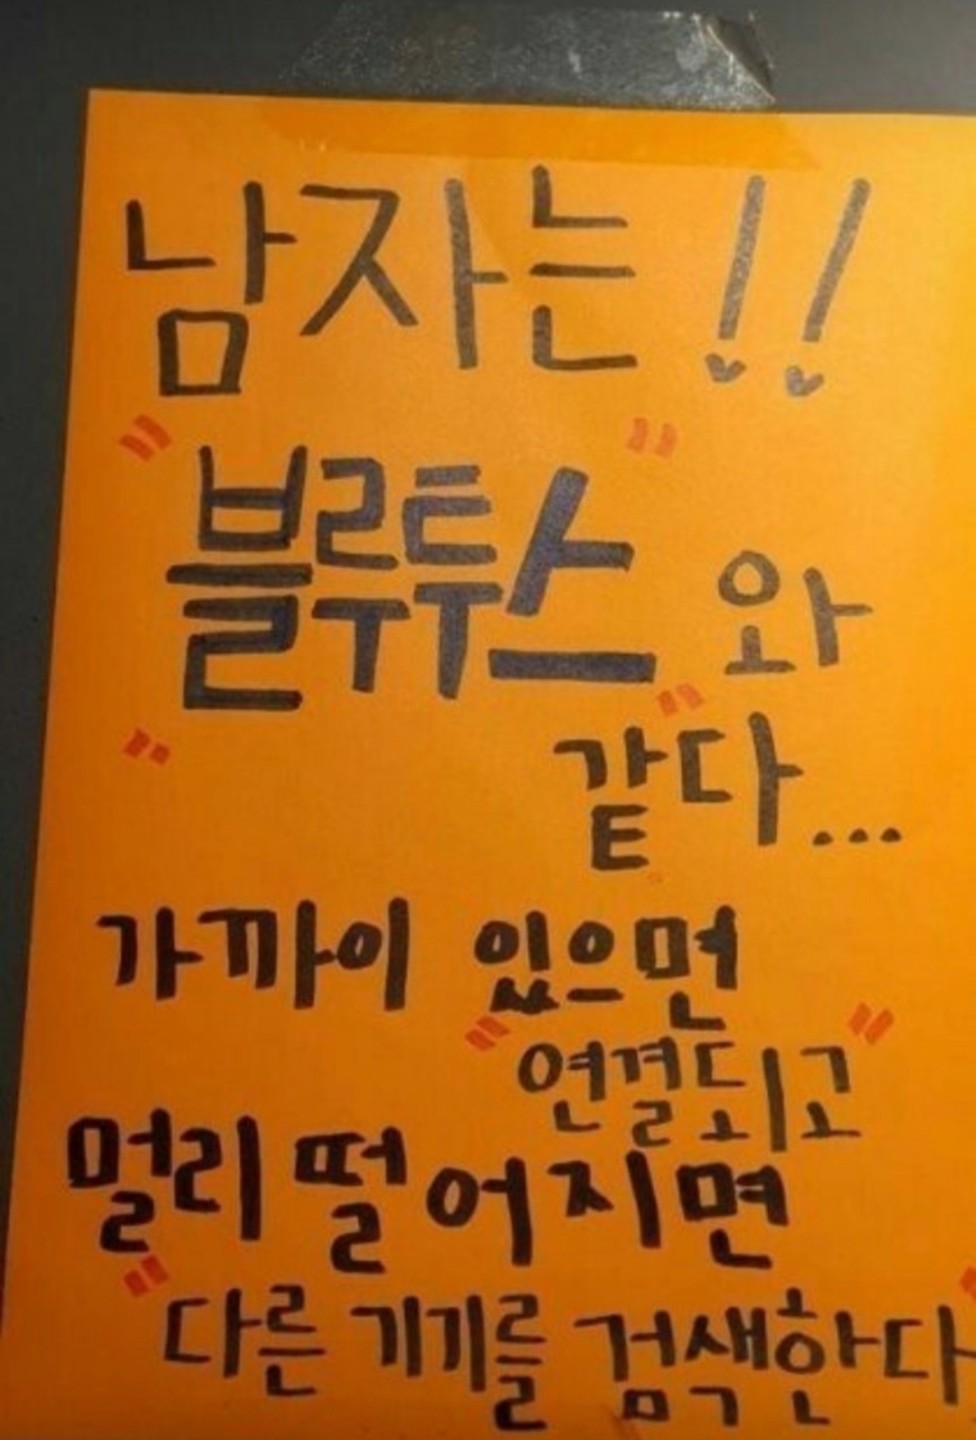 남자는!!
"블루투스"와
"같다..."
가까이 있으면
"연결되고"
멀리 떨어지면
"다른 기기를 검색한다"